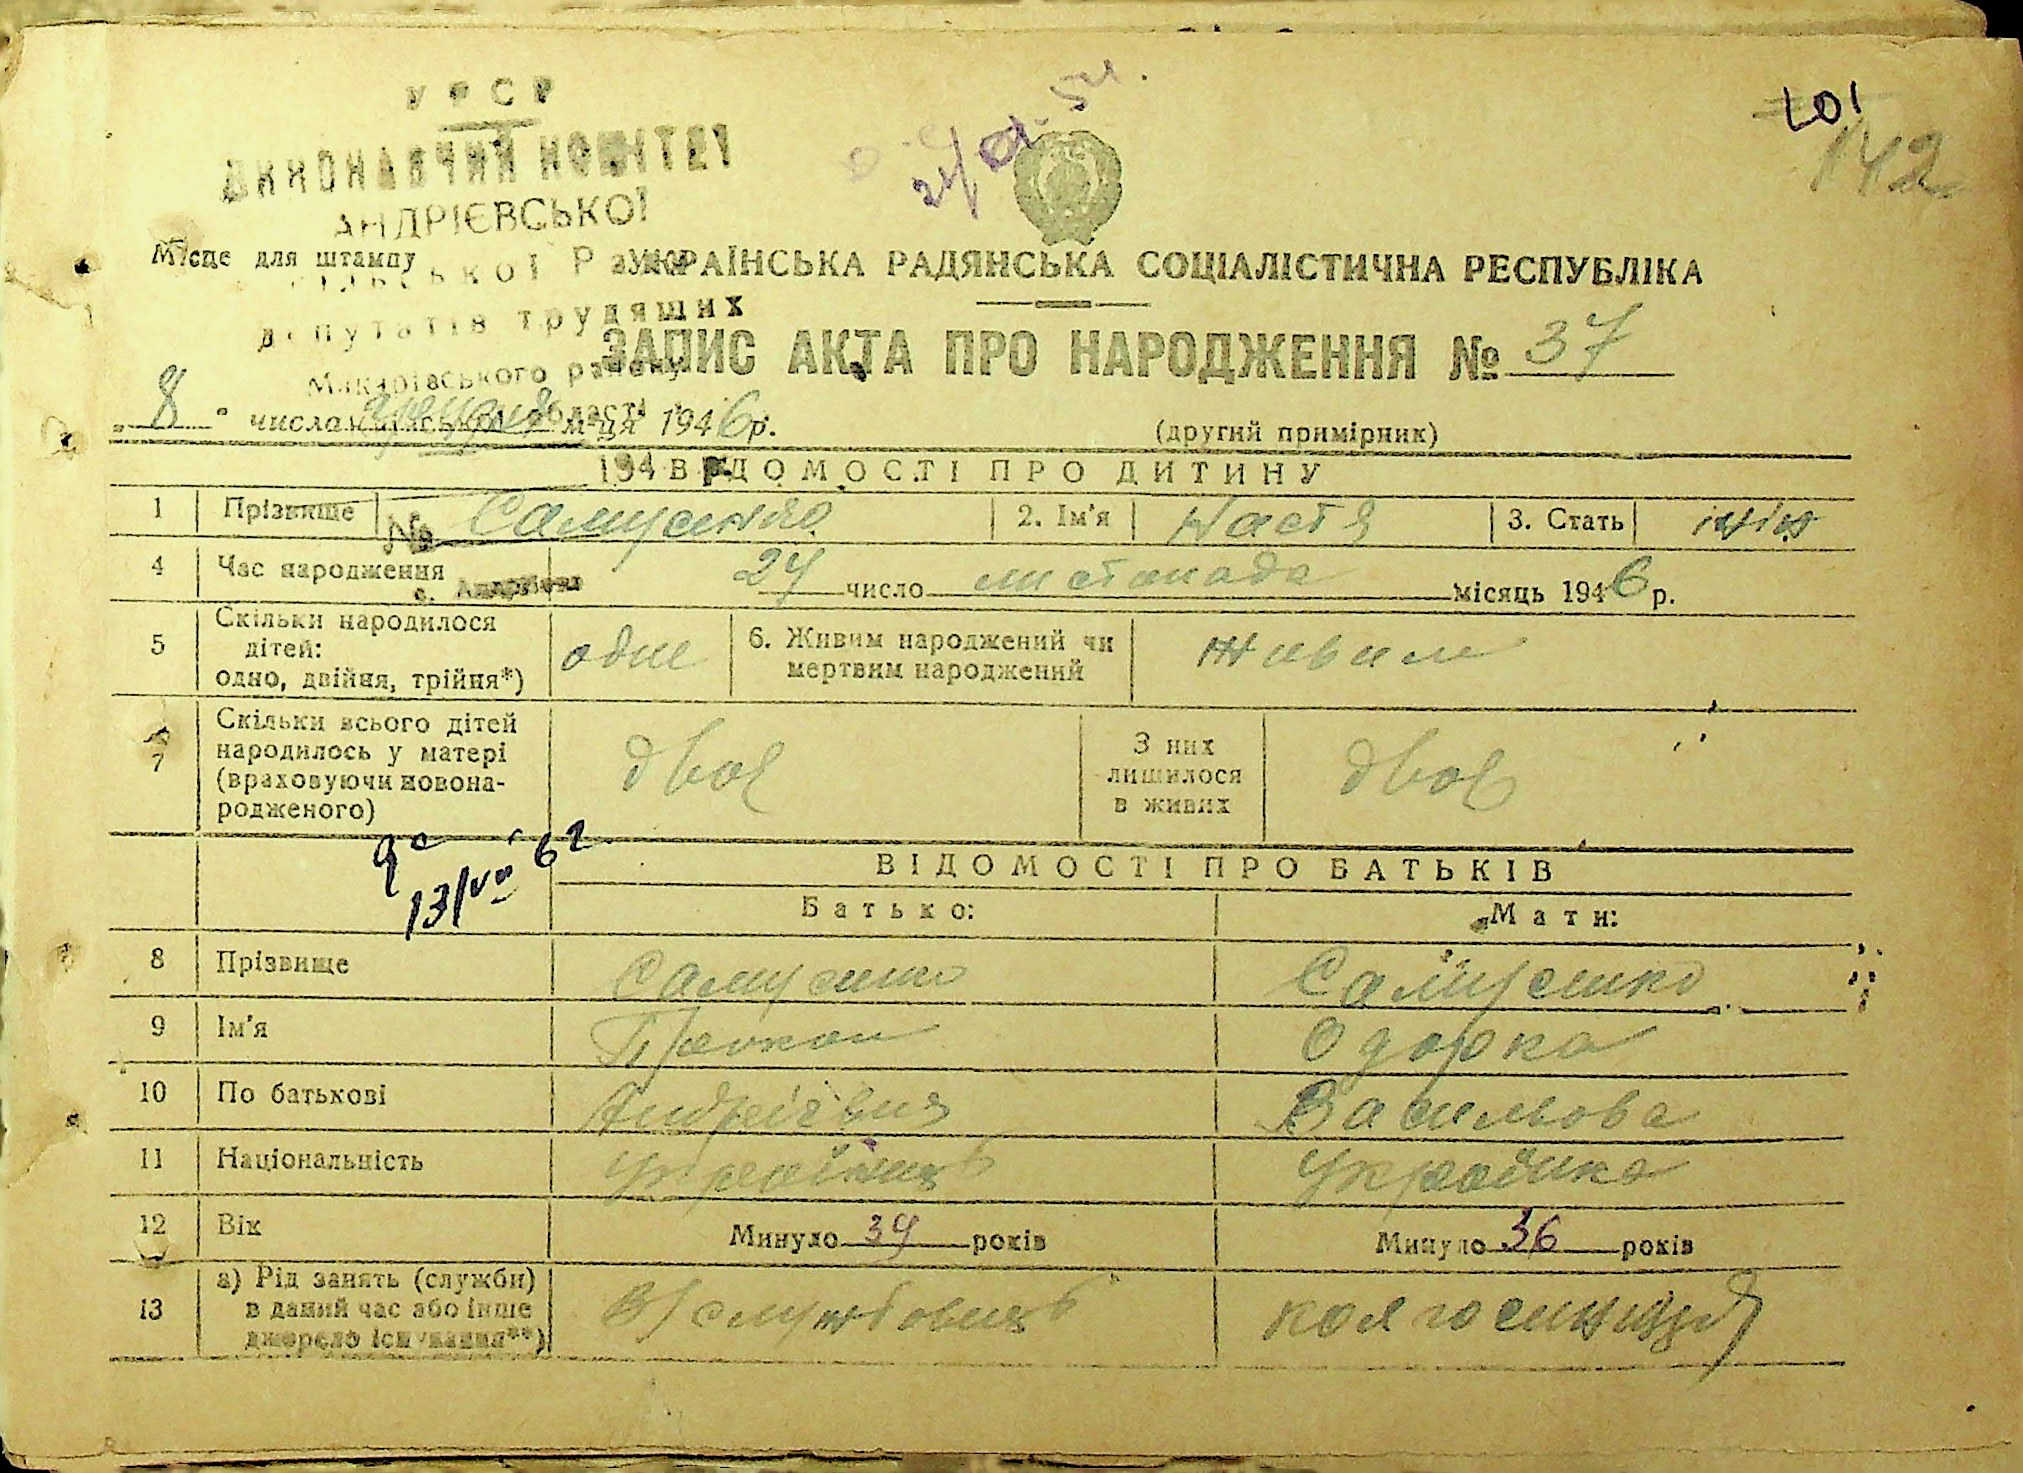 УРСР
ВИКОНАВЧИЙ КОМІТЕТ
АНДРІЄВСЬКОЇ
Місце для штампу
СІЛЬСЬКОЇ Ради
депутатів трудящих
Макарівського району
області
194 р.
№
с. Андріївка
101
142
УКРАЇНСЬКА РАДЯНСЬКА СОЦІАЛІСТИЧНА РЕСПУБЛІКА
ЗАПИС АКТА ПРО НАРОДЖЕННЯ № 37
„8“ числа грудня м-ця 1946 р.
(другий примірник)
ВІДОМОСТІ ПРО ДИТИНУ
1 Прізвище Самусенко 2. Ім'я Настя 3. Стать жін
4 Час народження 24 число листопада місяць 1946 р.
5 Скільки народилося дітей: одно, двійня, трійня*) одне 6. Живим народжений чи мертвим народжений живим
7 Скільки всього дітей народилось у матері (враховуючи новонародженого) двоє З них лишилося в живих двоє
13/VII 62
ВІДОМОСТІ ПРО БАТЬКІВ
Батько: Мати:
8 Прізвище Самусенко Самусенко
9 Ім'я Одарка
10 По батькові Андрієвич Василівна
11 Національність Українець Українка
12 Вік Минуло 39 років Минуло 36 років
13 а) Рід занять (служби) в даний час або інше джерело існування**) В/службовець колгоспниця